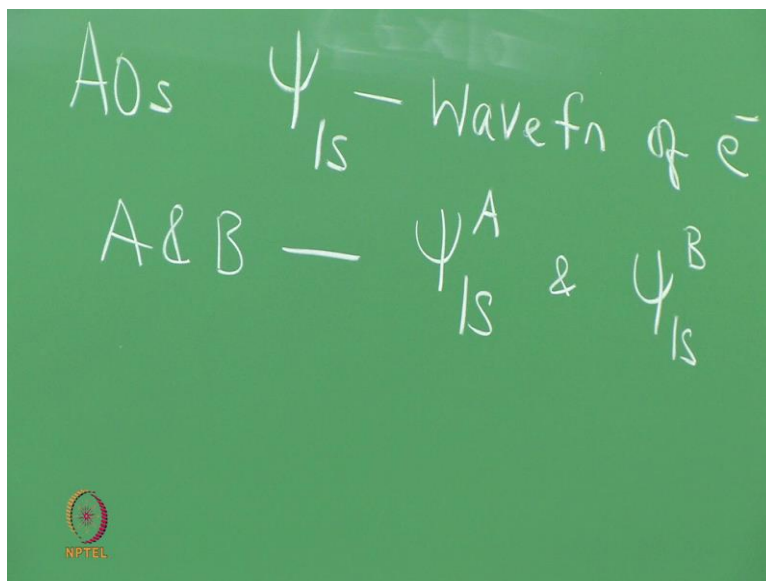 AOs Ψ1s — Wavefn of e⁻
A & B — Ψ1s^A & Ψ1s^B
NPTEL